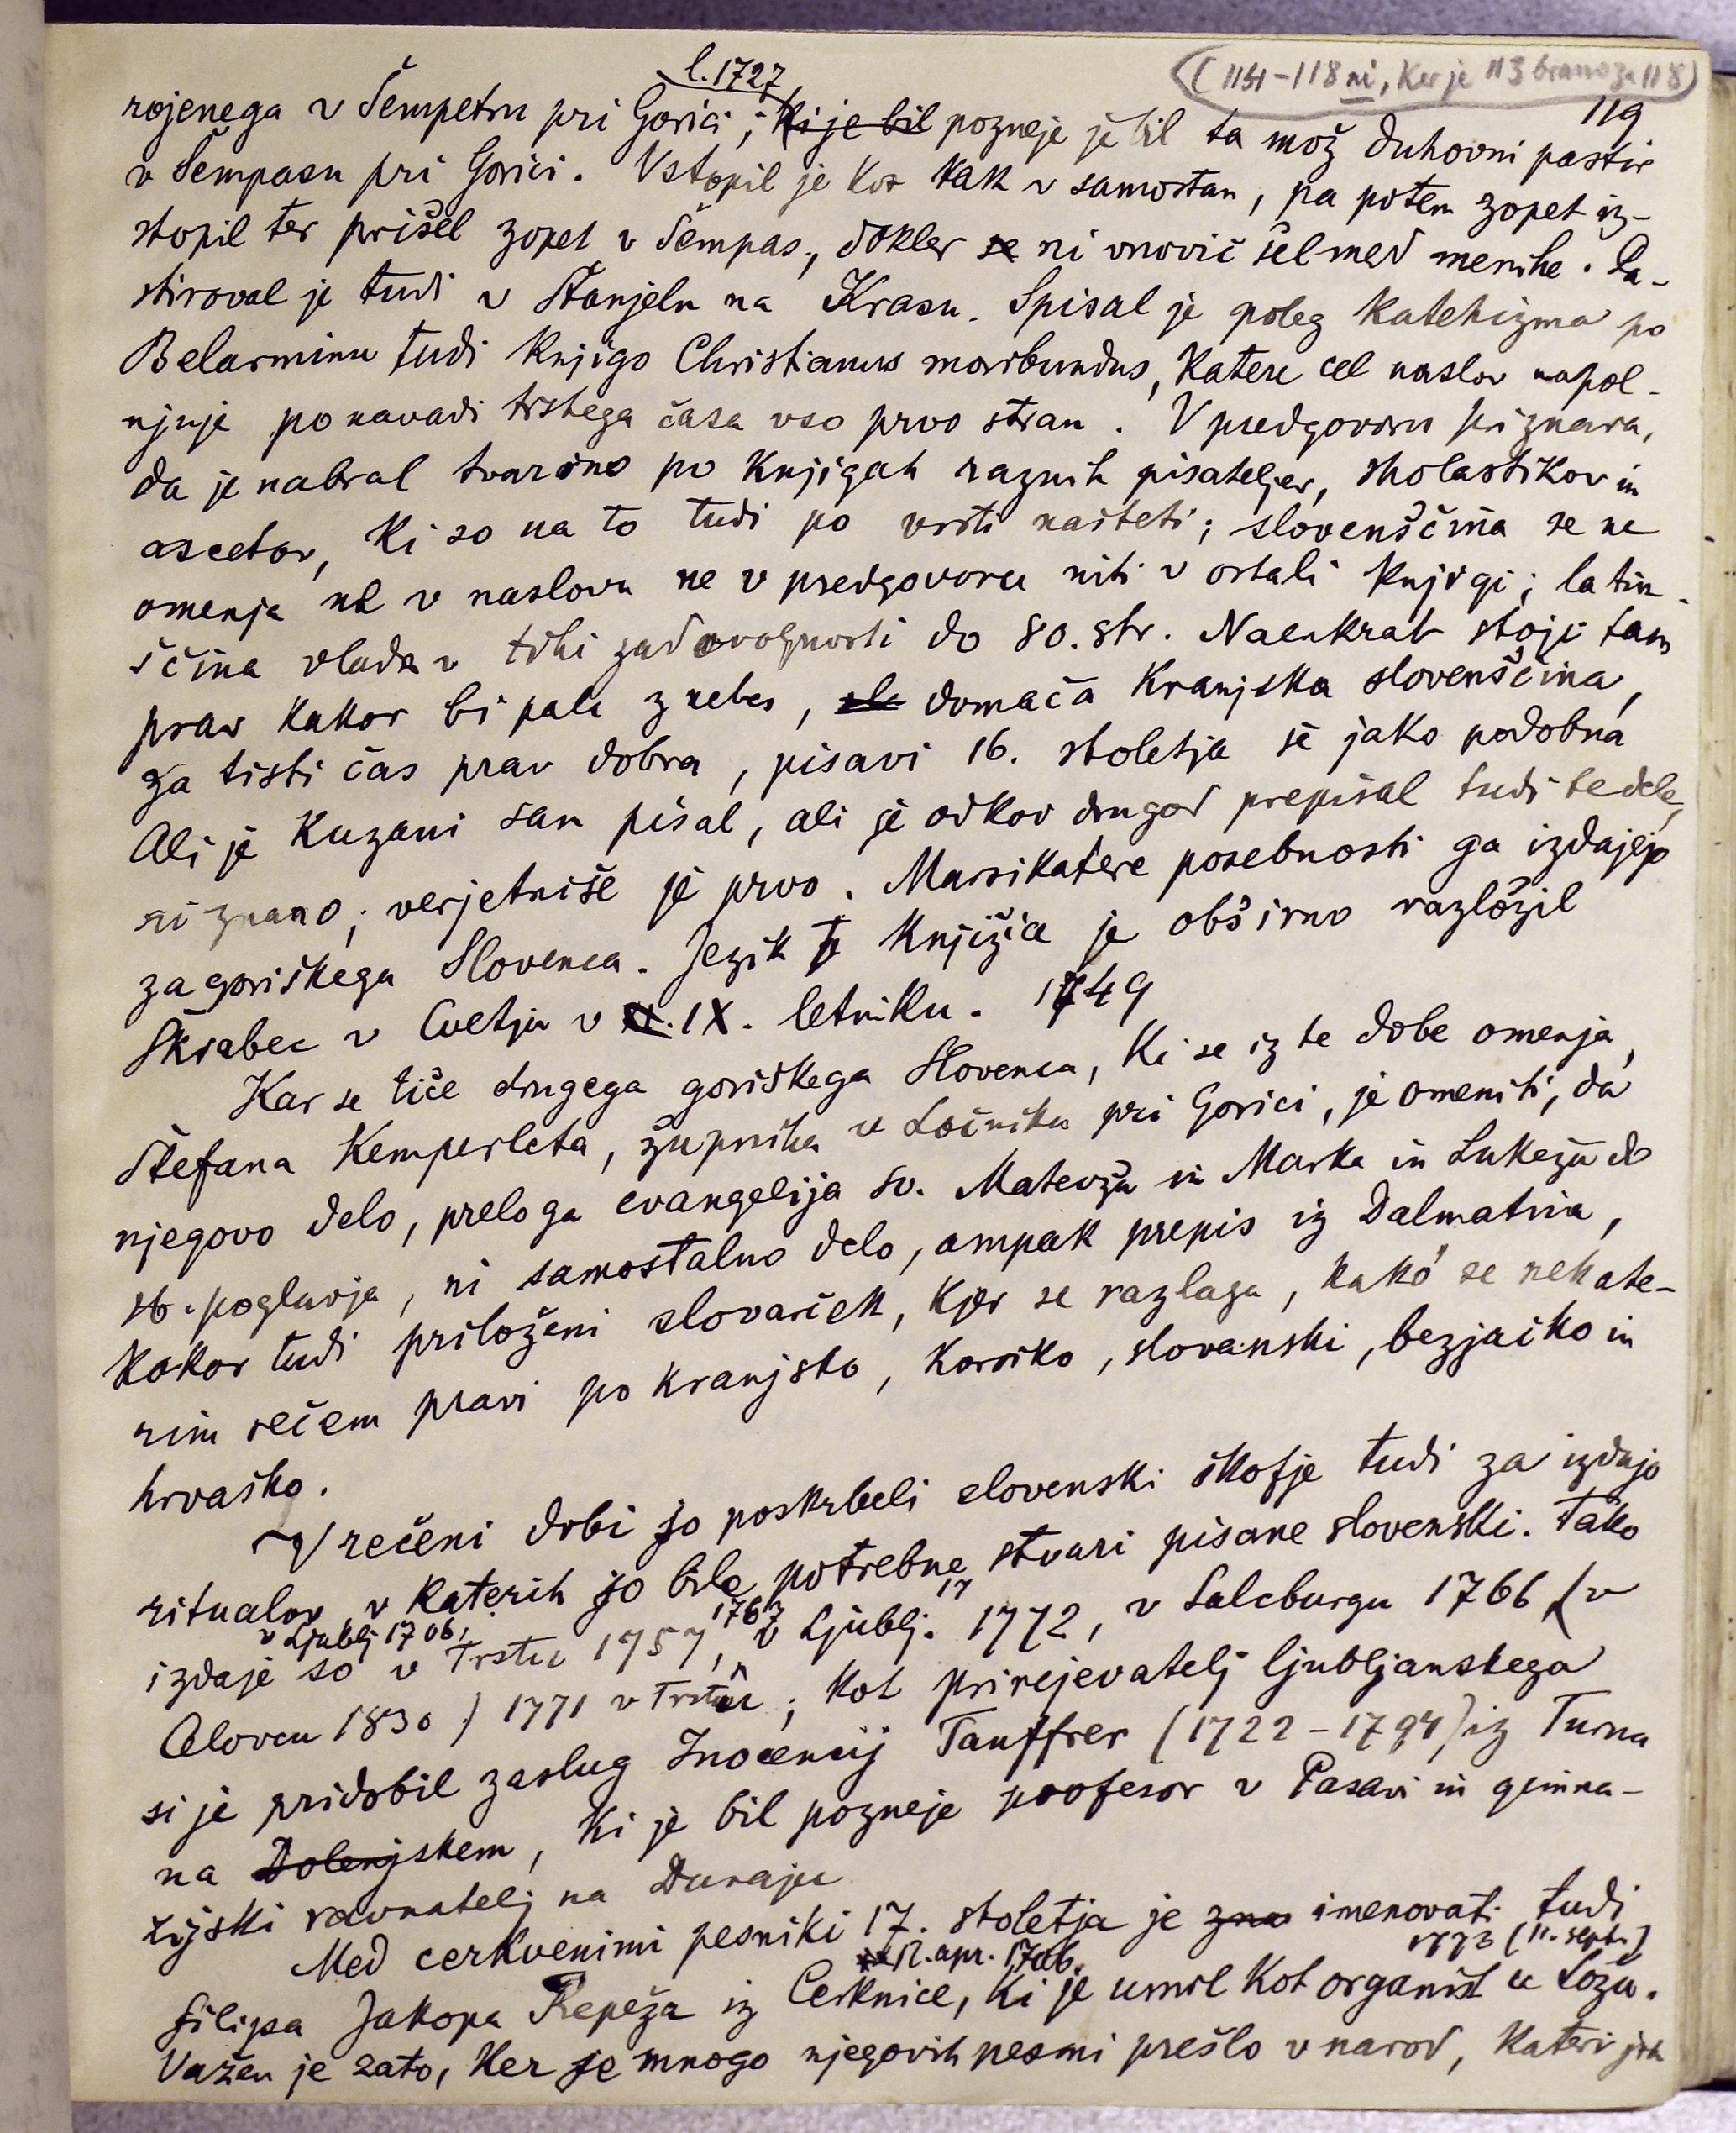 (114-118 ni, ker je 113 brano za 118)
119
l. 1727
rojenega v Šempetru pri Gorici; ki je bil pozneje je bil ta mož duhovni pastir
v Šempasu pri Gorici. Vstopil je kot tak v samostan, pa potem zopet iz-
stopil ter prišel zopet v Šempas, dokler se ni vnovič šel med menihe. Pa-
stiroval je tudi v Štanjelu na Krasu. Spisal je poleg katehizma po
Belarminu tudi knjigo Christianus moribundus, katere cel naslov napol-
njuje po navadi tistega časa vso prvo stran. V predgovoru priznava,
da je nabral tvarino po knjigah raznih pisateljev, sholastikov in
ascetov, ki so na to tudi po vrsti našteti; slovenščina se ne
omenja ne v naslovu ne v predgovoru niti v ostali knjigi; latin-
ščina vlada v tihi zadovoljnosti do 80. str. Naenkrat stoji tam
prav kakor bi pala z nebes, domača kranjska slovenščina,
za tisti čas prav dobra, pisavi 16. stoletja je jako podobna
Ali je Kuzani sam pisal, ali je odkod drugod prepisal tudi te dele,
ni znano; verjetniše je prvo. Marsikatere posebnosti ga izdajejo
za goriškega Slovenca. Jezik te knjižice je obširno razložil
Škrabec v Cvetju v XI. IX. letniku. 1749
Kar se tiče drugega goriškega Slovenca, ki se iz te dobe omenja,
Štefana Kemperleta, župnika v Ločniku pri Gorici, je omeniti, da
njegovo delo, preloga evangelija sv. Matevža in Marka in Lukeža do
16. poglavja, ni samostalno delo, ampak prepis iz Dalmatina,
kakor tudi priloženi slovarček, kjer se razlaga, kako se nekate-
rim rečem pravi po kranjsko, korsiko, slovanski, bezjačko in
hrvaško.
V rečeni dobi so poskrbeli slovenski škofje tudi za izdajo
ritualov, v katerih so bile potrebne stvari pisane slovenski. Tako
v Ljublj 1706, 1767 17
izdaje so v Trstu 1757, v Ljublj. 1772, v Salcburgu 1766 (v
Celovcu 1830) 1771 v Trstu; kot prirejevatelj ljubljanskega
si je pridobil zaslug Inocencij Tauffrer (1722-1794) iz Turna
na Dolenjskem, ki je bil pozneje profesor v Pasavi in gimna-
zijski ravnatelj na Dunaju
Med cerkvenimi pesniki 17. stoletja je zna imenovati tudi
12. apr. 1706. 1773 (11. sept.)
Filipa Jakopa Repeža iz Cerknice, ki je umrl kot organist v Ložu.
Važen je zato, ker je mnogo njegovih pesmi prešlo v narod, kateri jih